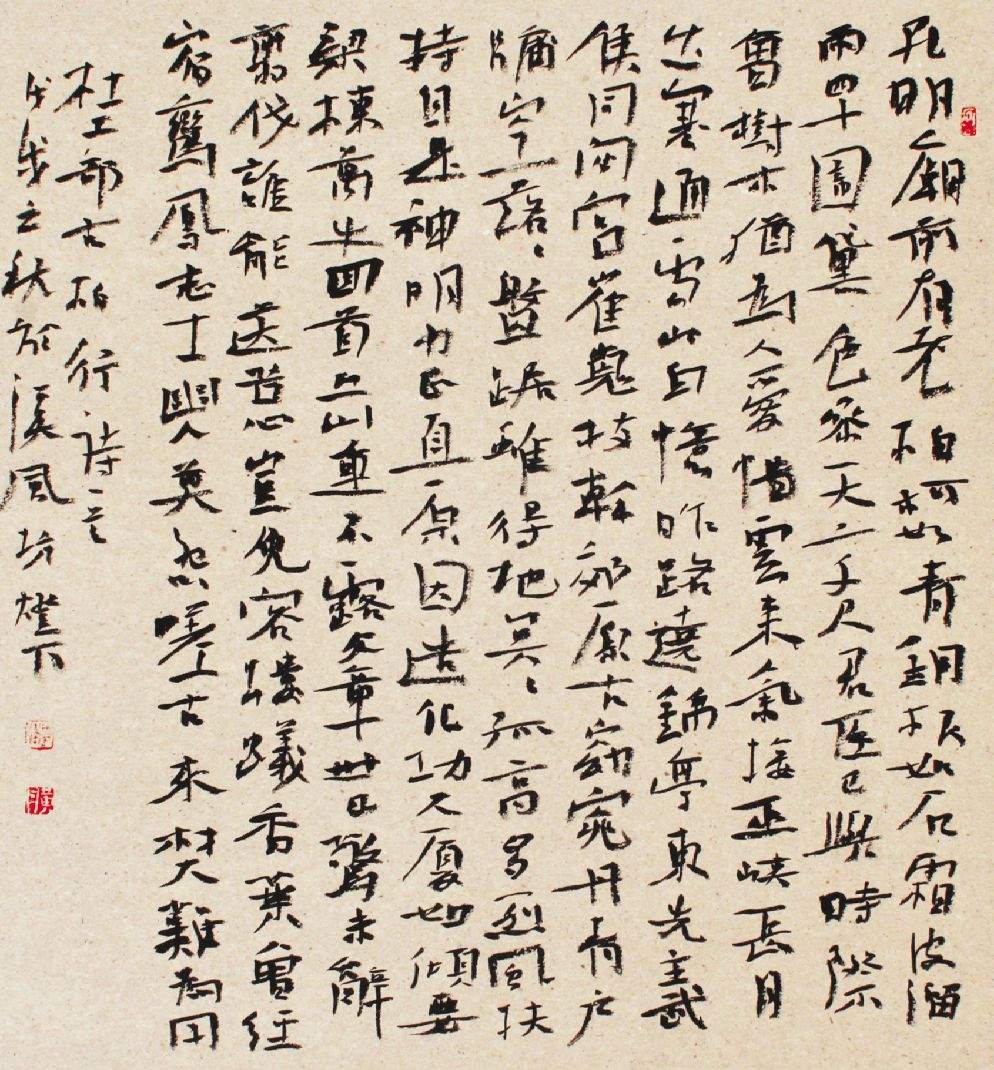 孔明廟前有老柏柯如青銅根如石霜皮溜
雨四十圍黛色參天二千尺君臣已與時際
會樹木猶為人愛惜雲來氣接巫峽長月
出寒通雪山白憶昨路遶錦亭東先主武
侯同閟宮崔嵬枝幹郊原古窈窕丹青戶
牖空落〻盤踞雖得地冥〻孤高多烈風扶
持自是神明力正直原因造化功大廈如傾要
梁棟萬牛回首丘山重不露文章世已驚未辭
剪伐誰能送苦心豈免容螻蟻香葉曾經
宿鸞鳳志士幽人莫怨嗟古來材大難為用
杜工部古柏行詩
之秋於溪風坊燈下